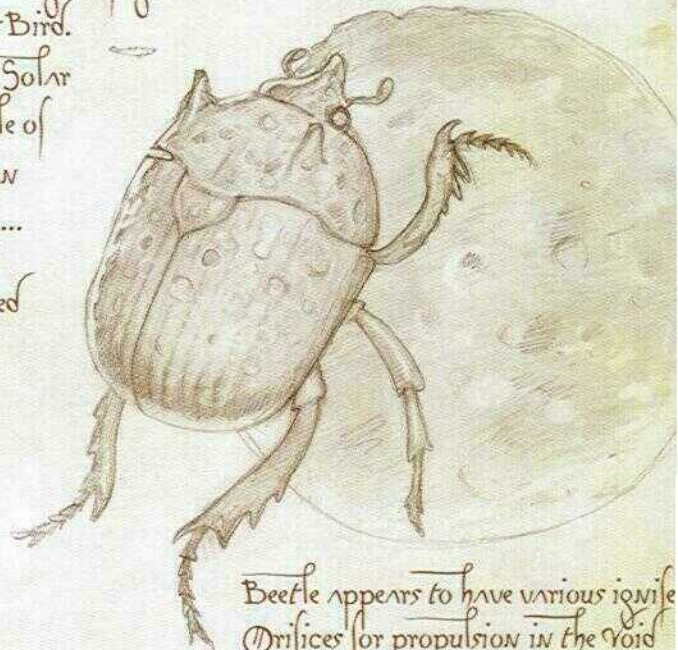 Bird.
Solar
of
...
Beetle appears to have various
Orifices for propulsion in the Void